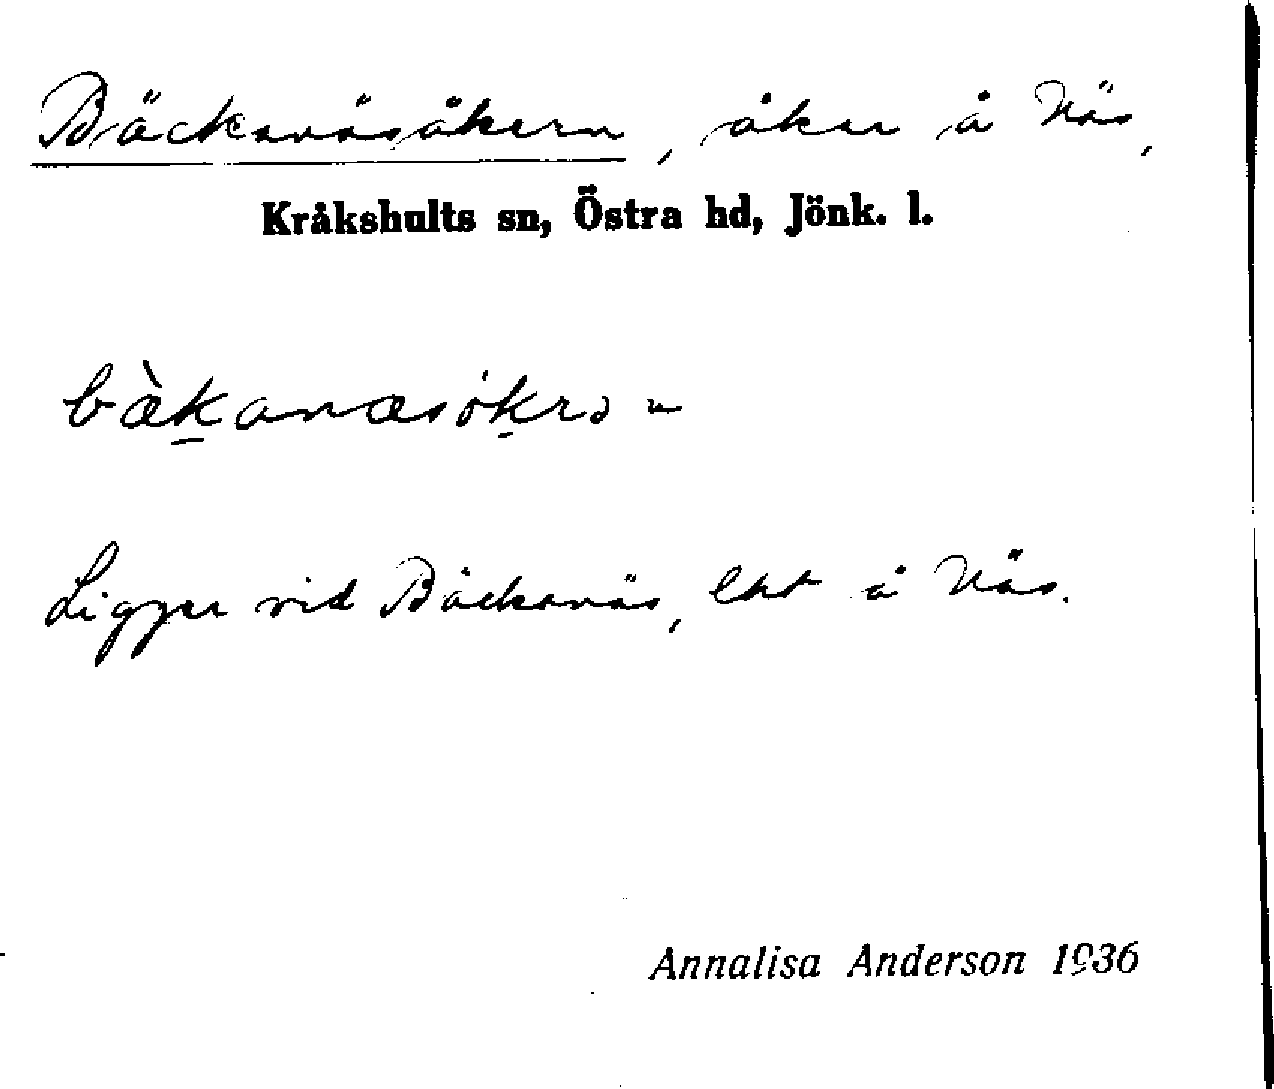 Bäckanäsåkern, åker å Näs,
Kråkshults sn, Östra hd, Jönk. l.
bæ̀kanæsókrən
Ligger vid Bäckanäs, lht å Näs.
Annalisa Anderson 1936